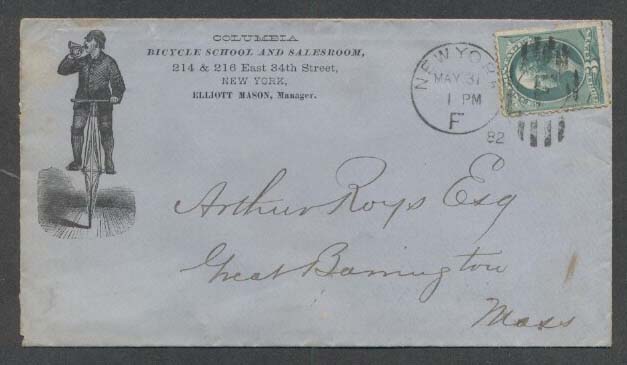 COLUMBIA
BICYCLE SCHOOL AND SALESROOM,
214 & 216 East 34th Street,
NEW YORK,
ELLIOTT MASON, Manager.
NEW YORK
MAY 31
1 PM
F
82
Arthur Roys Esq
Great Barrington
Mass